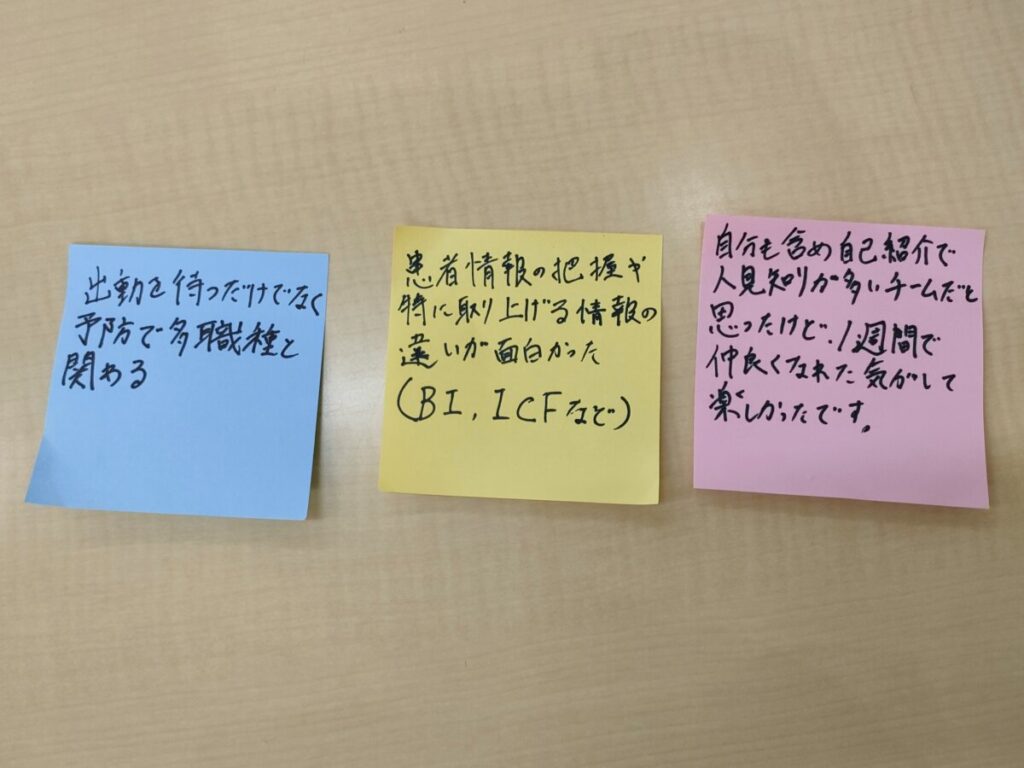 出動を待つだけでなく
予防で多職種と
関わる
患者情報の把握や
特に取り上げる情報の
違いが面白かった
(BI, ICFなど)
自分も含め自己紹介で
人見知りが多いチームだと
思ったけど、1週間で
仲良くなれた気がして
楽しかったです。